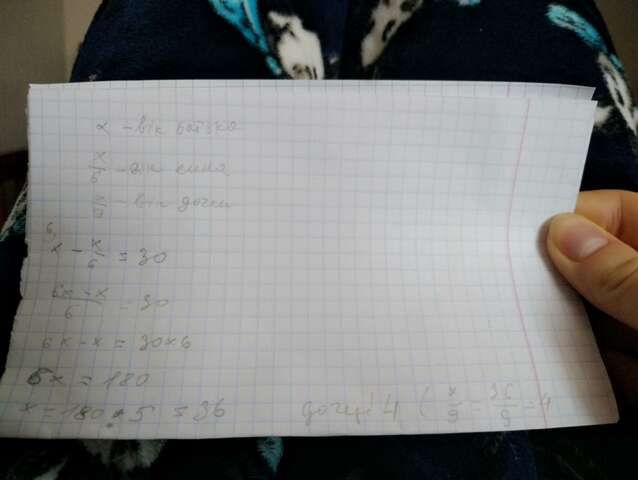 x – вік батька
x/6 – вік сина
x/9 – вік дочки
6
x – x/6 = 30
6x – x/6 = 30
6x – x = 30×6
5x = 180
x = 180 : 5 = 36
дочці 4 ( x/9 = 36/9 = 4